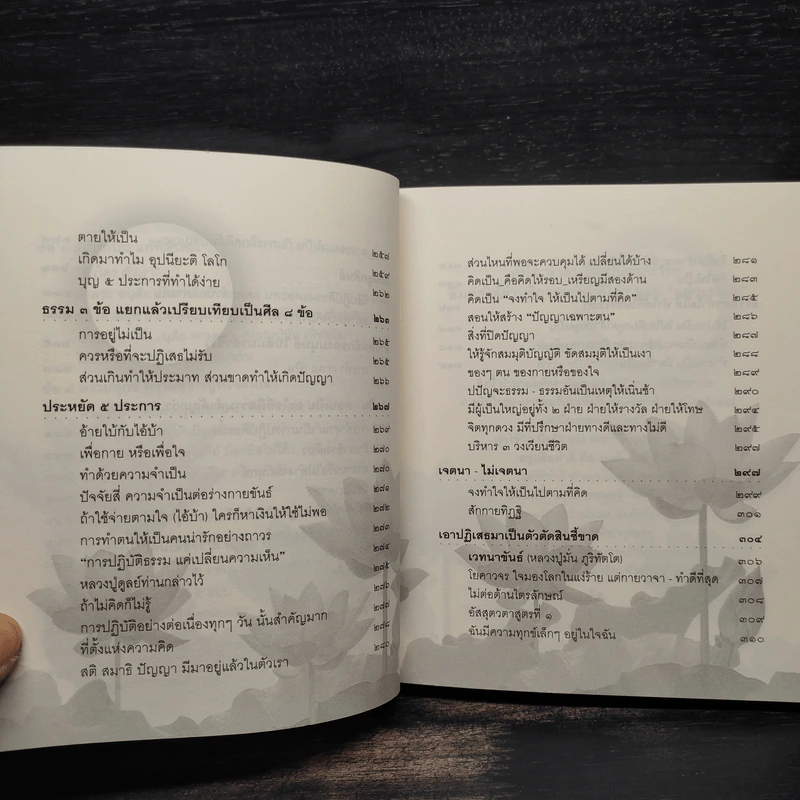 ตายให้เป็น ๒๕๗
เกิดมาทำไม อุปนียะติ โลโก ๒๕๙
บุญ ๕ ประการที่ทำได้ง่าย ๒๖๒
ธรรม ๓ ข้อ แยกแล้วเปรียบเทียบเป็นศีล ๘ ข้อ ๒๖๓
การอยู่ไม่เป็น ๒๖๕
ควรหรือที่จะปฏิเสธไม่รับ ๒๖๕
ส่วนเกินทำให้ประมาท ส่วนขาดทำให้เกิดปัญญา ๒๖๖
ประหยัด ๕ ประการ ๒๖๗
อ้ายใบ้กับไอ้บ้า ๒๖๙
เพื่อกาย หรือเพื่อใจ ๒๗๐
ทำด้วยความจำเป็น ๒๗๐
ปัจจัยสี่ ความจำเป็นต่อร่างกายขันธ์ ๒๗๑
ถ้าใช้จ่ายตามใจ (ไอ้บ้า) ใครก็หาเงินให้ใช้ไม่พอ ๒๗๒
การทำตนให้เป็นคนน่ารักอย่างถาวร ๒๗๓
“การปฏิบัติธรรม แค่เปลี่ยนความเห็น” ๒๗๔
หลวงปู่ดูลย์ท่านกล่าวไว้ ๒๗๕
ถ้าไม่คิดก็ไม่รู้ ๒๗๖
การปฏิบัติอย่างต่อเนื่องทุกๆ วัน นั้นสำคัญมาก ๒๗๗
ที่ตั้งแห่งความคิด ๒๗๘
สติ สมาธิ ปัญญา มีมาอยู่แล้วในตัวเรา ๒๘๐
ส่วนไหนที่พอจะควบคุมได้ เปลี่ยนได้บ้าง ๒๘๑
คิดเป็น_คือคิดให้รอบ_เหรียญมีสองด้าน ๒๘๓
คิดเป็น “จงทำใจ ให้เป็นไปตามที่คิด” ๒๘๕
สอนให้สร้าง “ปัญญาเฉพาะตน” ๒๘๖
สิ่งที่ปิดปัญญา ๒๘๗
ให้รู้จักสมมุติบัญญัติ ขัดสมมุติให้เป็นเงา ๒๘๘
ของๆ ตน ของกายหรือของใจ ๒๘๙
ปปัญจะธรรม - ธรรมอันเป็นเหตุให้เนิ่นช้า ๒๙๐
มีผู้เป็นใหญ่อยู่ทั้ง ๒ ฝ่าย ฝ่ายให้รางวัล ฝ่ายให้โทษ ๒๙๔
จิตทุกดวง มีที่ปรึกษาฝ่ายทางดีและทางไม่ดี ๒๙๕
บริหาร ๓ วงเวียนชีวิต ๒๙๗
เจตนา - ไม่เจตนา ๒๙๗
จงทำใจให้เป็นไปตามที่คิด ๒๙๙
สักกายทิฏฐิ ๓๐๑
เอาปฏิเสธมาเป็นตัวตัดสินชี้ขาด ๓๐๔
เวทนาขันธ์ (หลวงปู่มั่น ภูริทัตโต) ๓๐๖
โยคาวจร ใจมองโลกในแง่ร้าย แต่กายวาจา - ทำดีที่สุด ๓๐๗
ไม่ต่อต้านไตรลักษณ์ ๓๐๘
อัสสุตวตาสูตรที่ ๑ ๓๐๙
ฉันมีความทุกข์เล็กๆ อยู่ในใจฉัน ๓๑๐